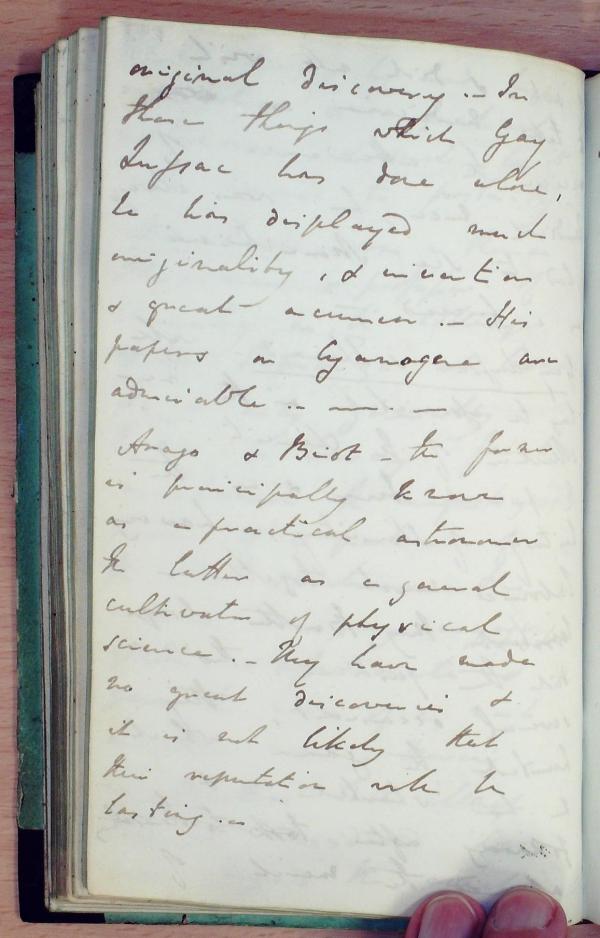 original discovery. – In
those things which Gay
Lussac has done alone,
he has displayed much
originality, & invention
& great acumen. – His
papers on Cyanogene are
admirable. – — . —
Arago & Biot – the former
is principally known
as a practical astronomer
the latter as a general
cultivator of physical
science. – They have made
no great discoveries &
it is not likely that
their reputation will be
lasting. –